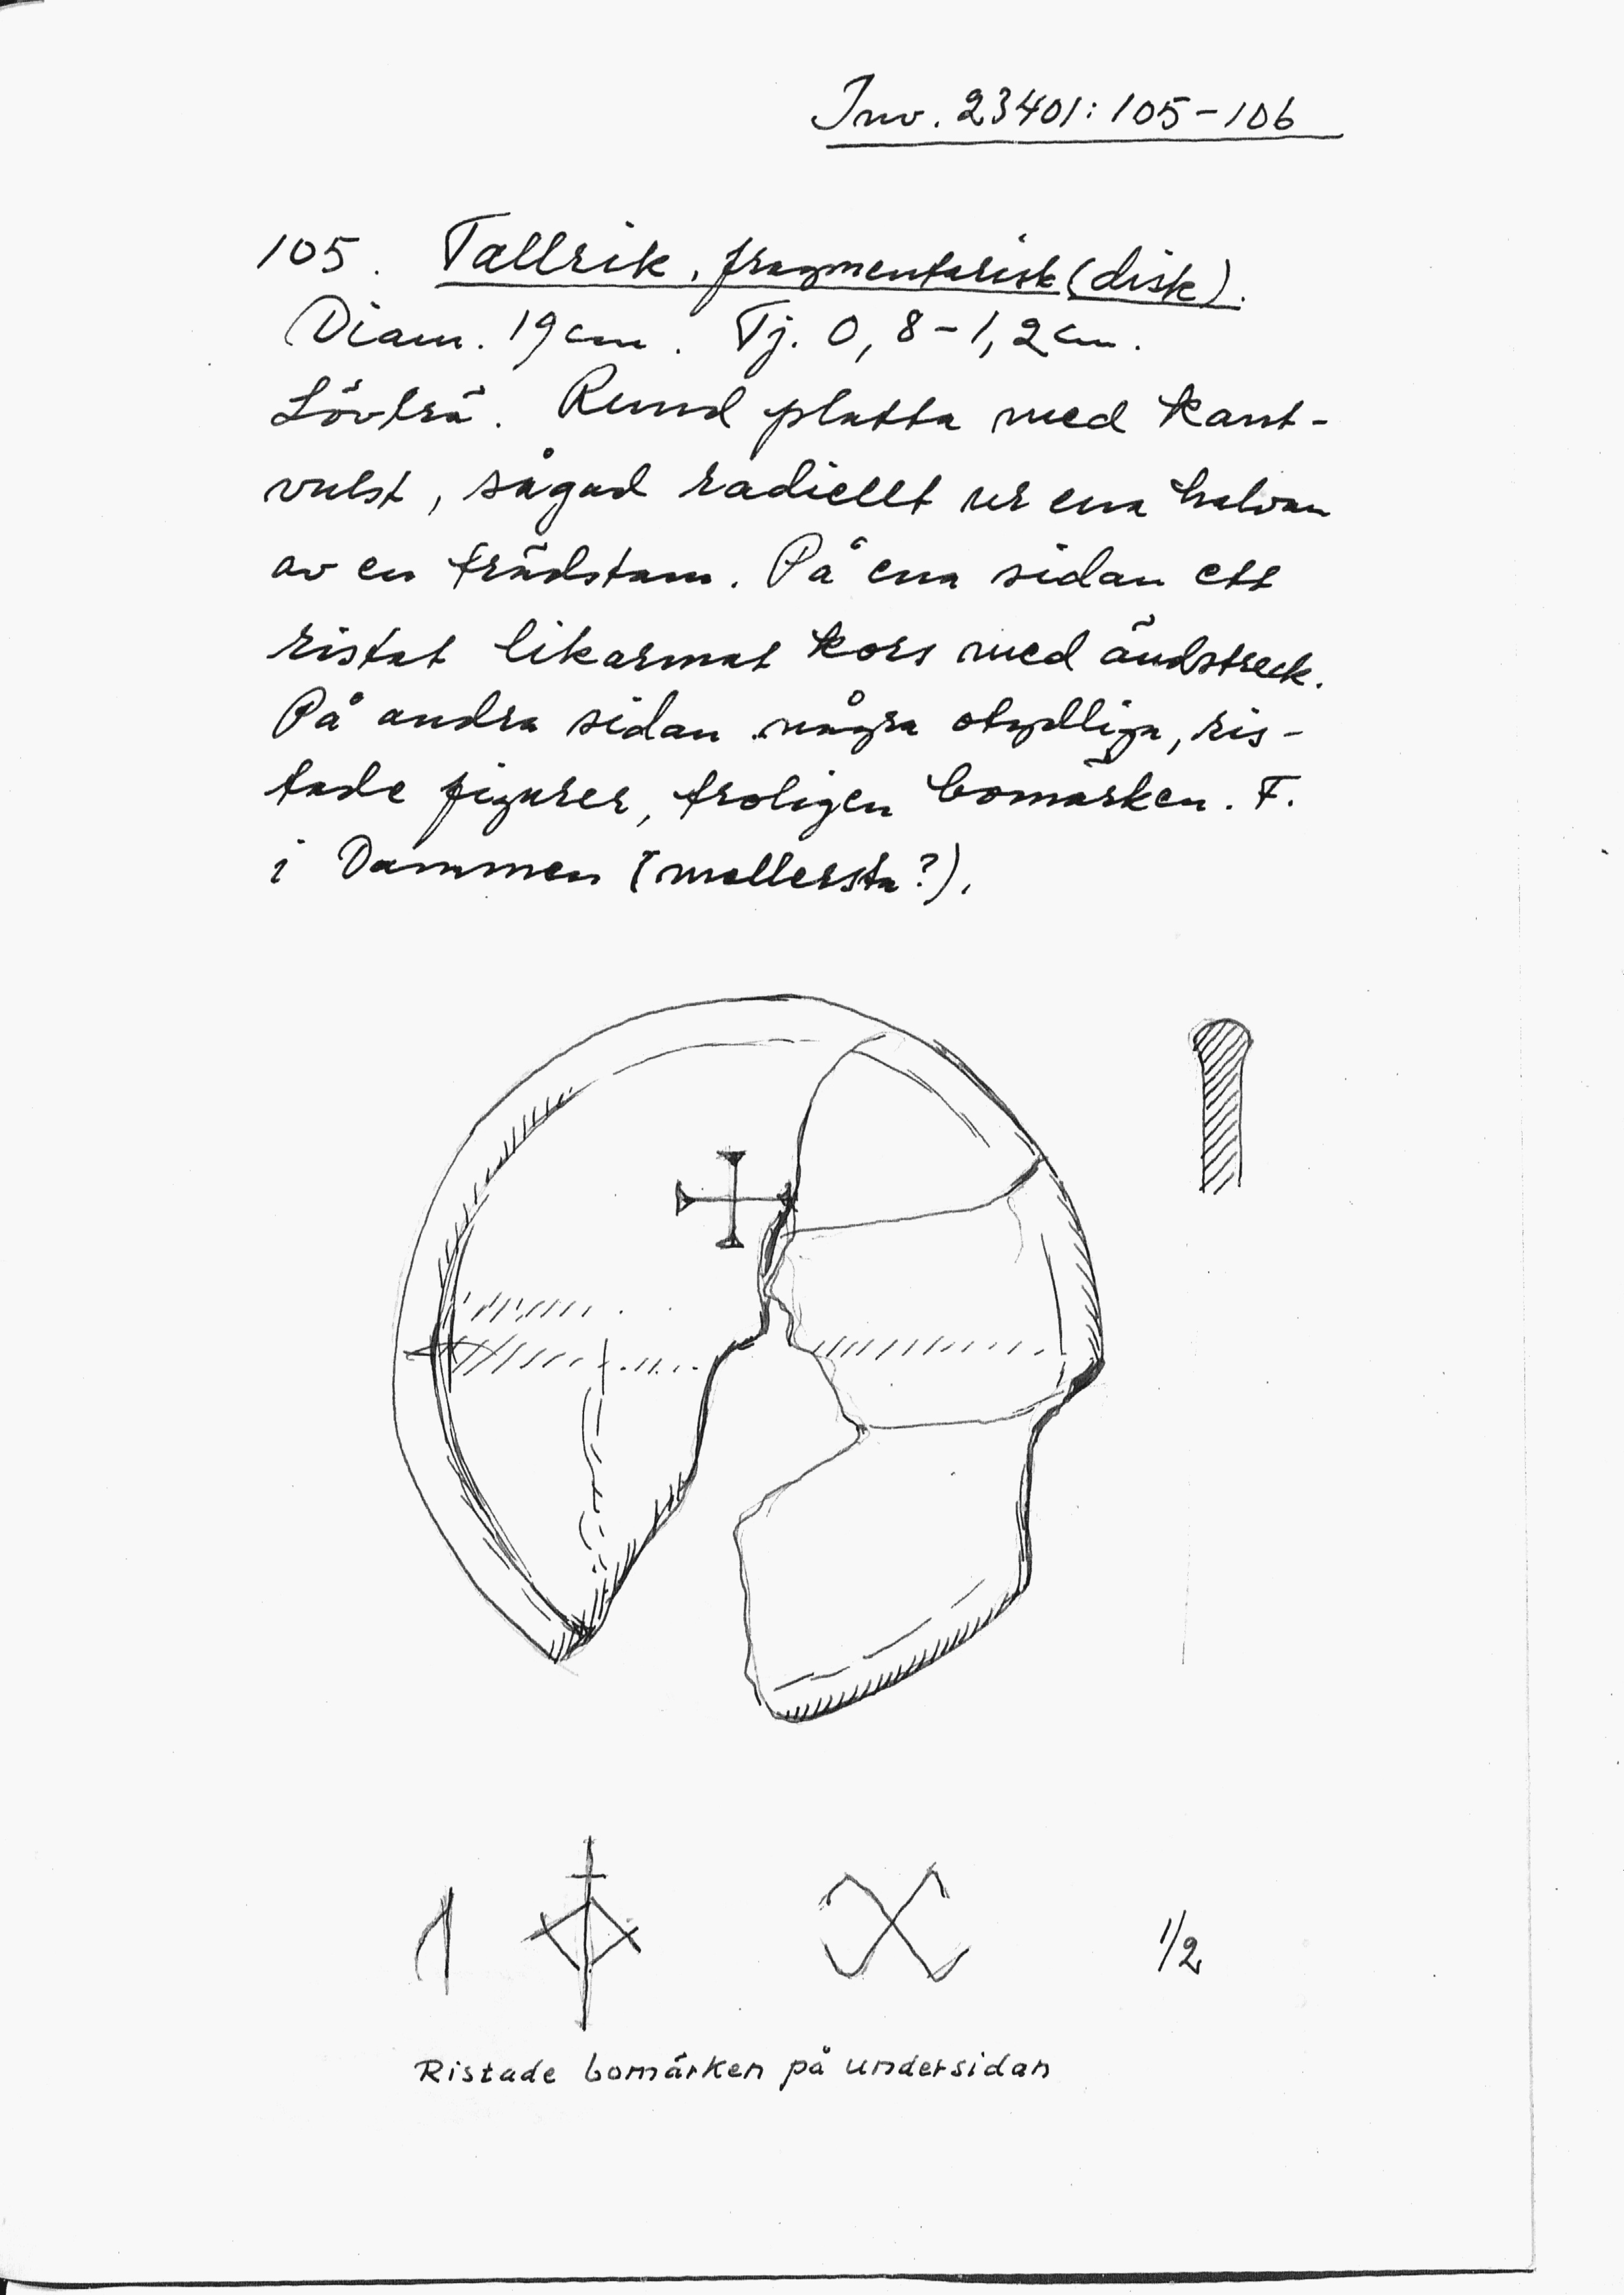 Inv. 23401:105-106
105. Tallrik, fragmentarisk (disk).
Diam. 19 cm. Tj. 0,8-1,2 cm.
Lövträ. Rund platta med kant-
vulst, sågad radiellt ur ena halvan
av en trädstam. På ena sidan ett
ristat likarmat kors med ändstreck.
På andra sidan några otydliga, ris-
tade figurer, troligen bomärken. F.
i Dammen (mellersta?).
1/2
Ristade bomärken på undersidan